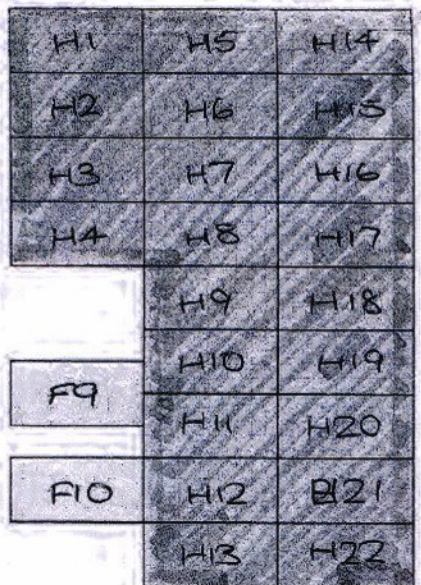 H1 H5 H14
H2 H6 H15
H3 H7 H16
H4 H8 H17
H9 H18
H10 H19
F9
H11 H20
F10 H12 H21
H13 H22